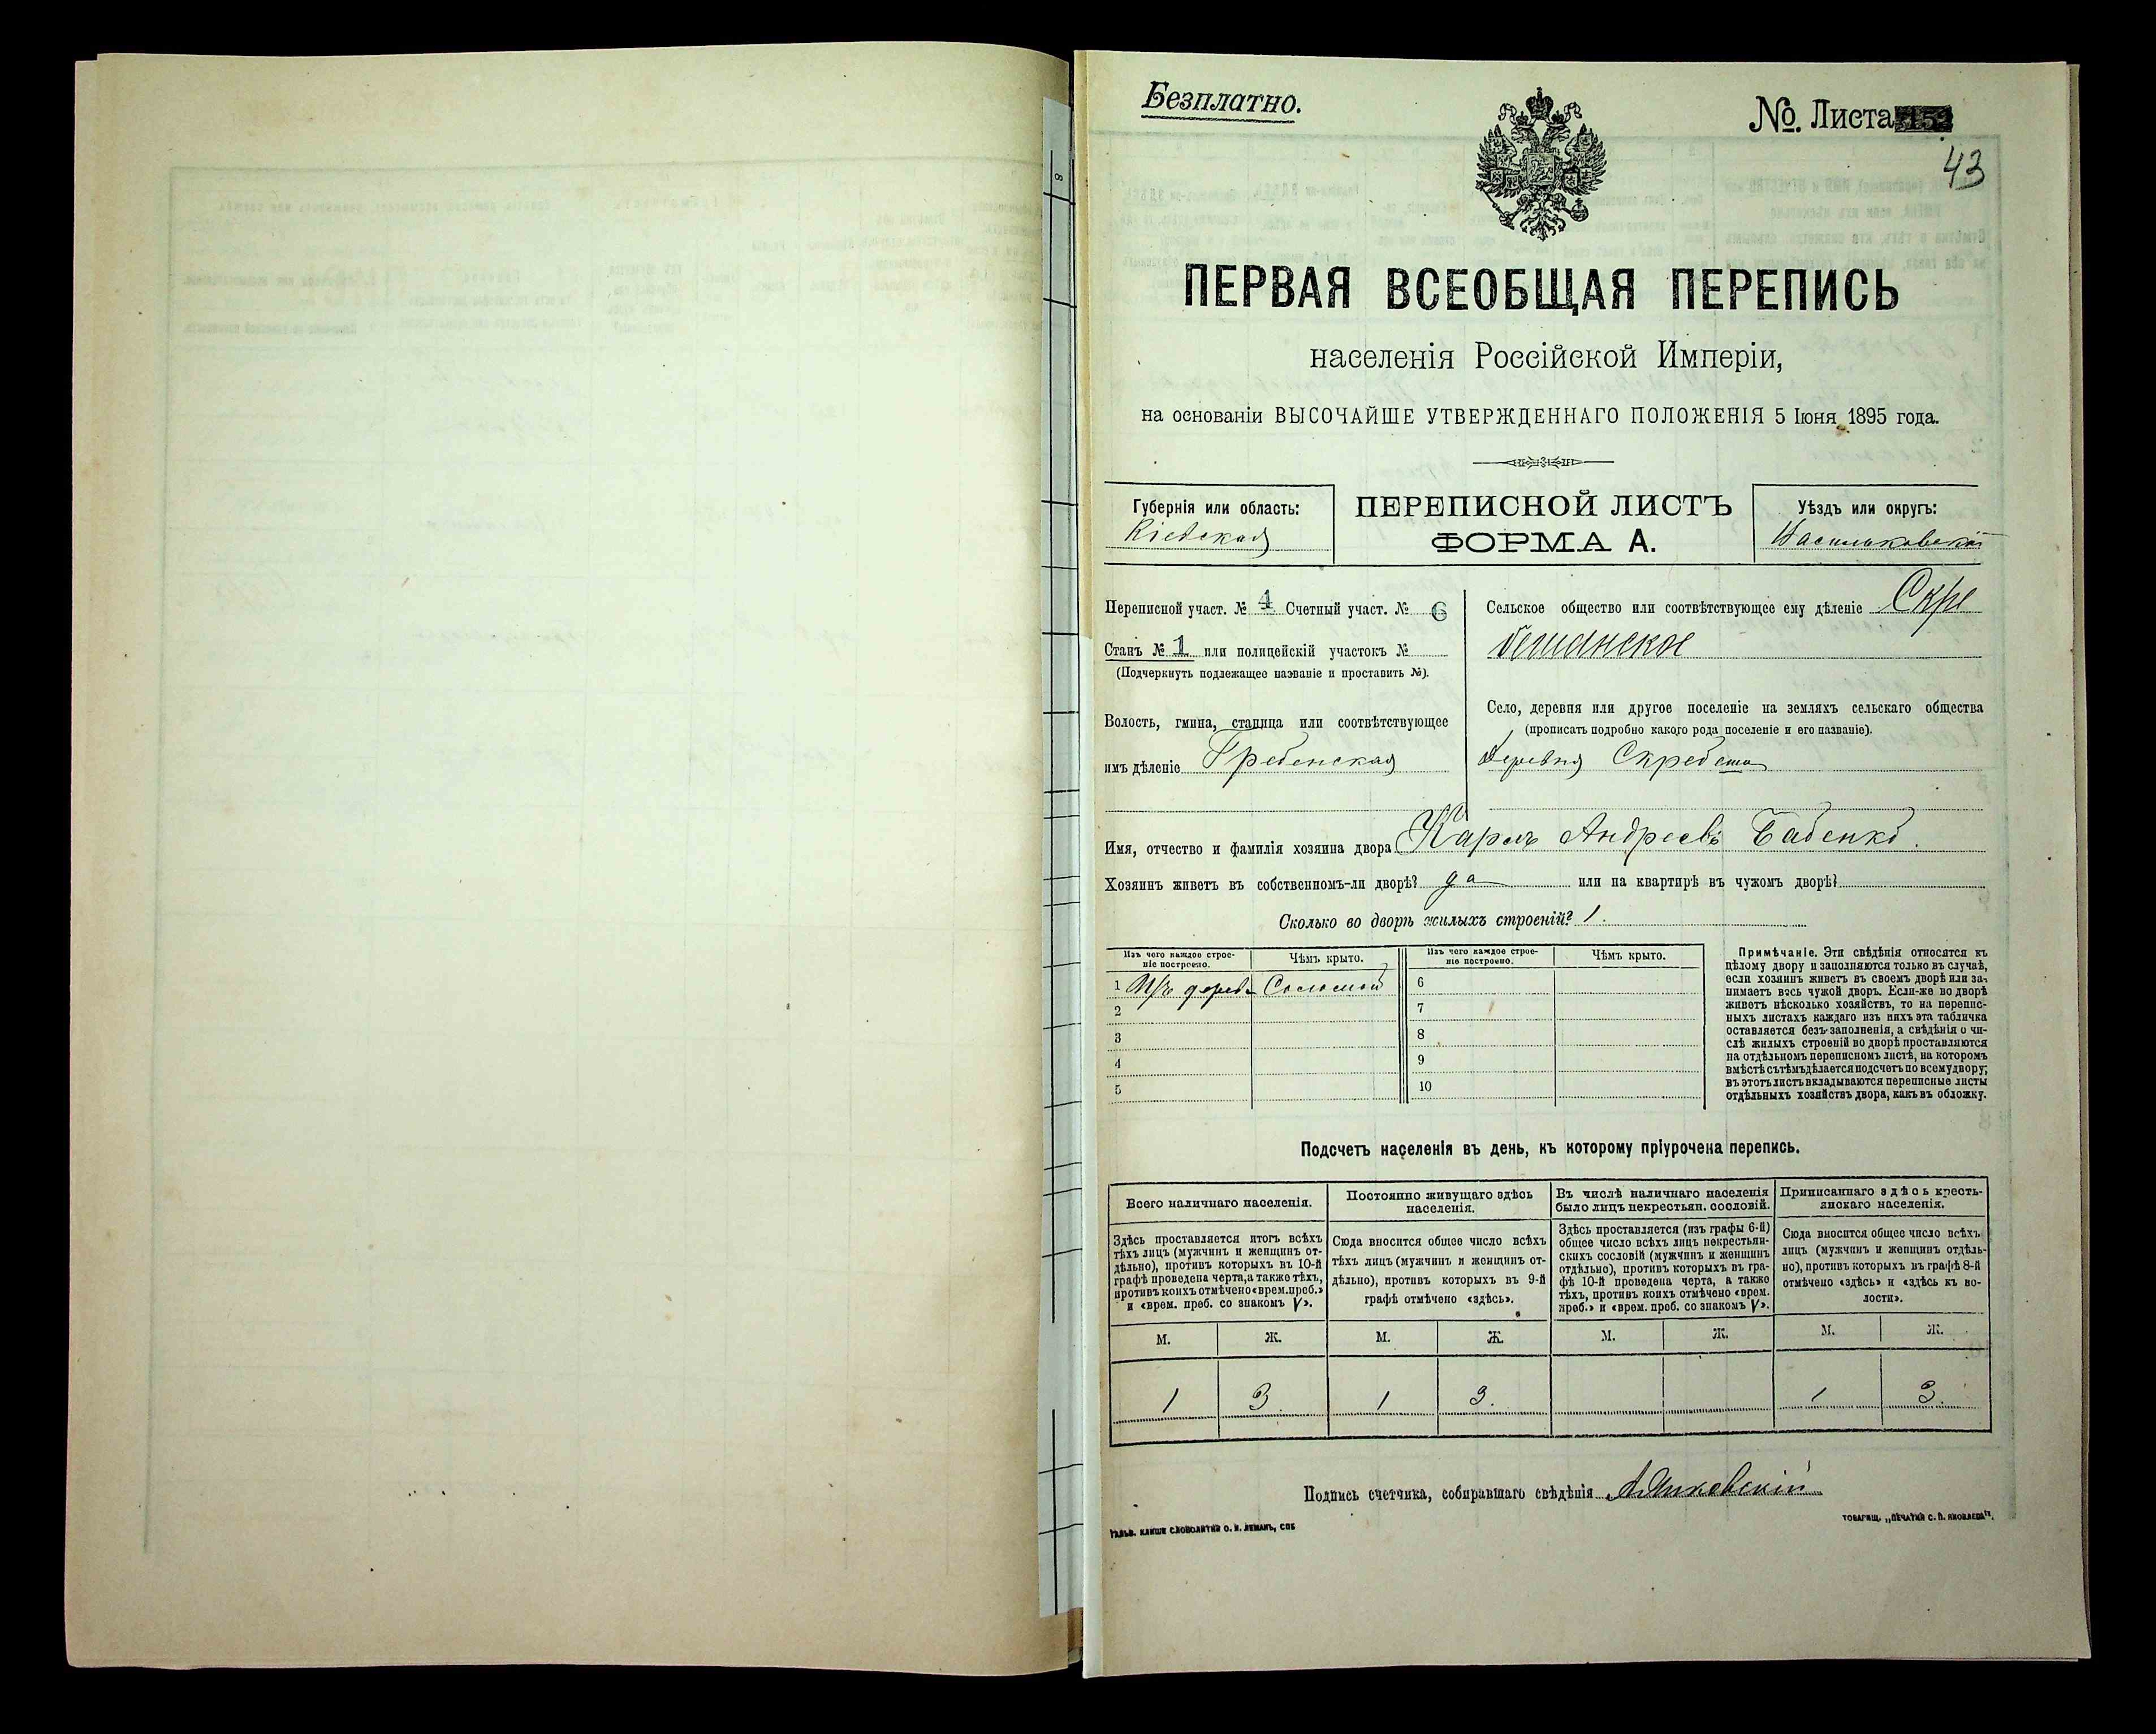 Безплатно.
№. Листа
43
ПЕРВАЯ ВСЕОБЩАЯ ПЕРЕПИСЬ
населенія Россійской Имперіи,
на основаніи ВЫСОЧАЙШЕ УТВЕРЖДЕННАГО ПОЛОЖЕНІЯ 5 Іюня 1895 года.
Губернія или область:
Кіевская
ПЕРЕПИСНОЙ ЛИСТЪ
ФОРМА А.
Уѣздъ или округъ:
Васильковскій
Переписной участ. № 4 Счетный участ. № 6
Станъ № 1 или полицейскій участокъ №
(Подчеркнуть подлежащее названіе и проставить №).
Волость, гмина, станица или соотвѣтствующее
имъ дѣленіе Гребенская
Сельское общество или соотвѣтствующее ему дѣленіе Скре
бешанское
Село, деревня или другое поселеніе на земляхъ сельскаго общества
(прописать подробно какого рода поселеніе и его названіе).
Деревня Скребеши
Имя, отчество и фамилія хозяина двора Карпъ Андреевъ Бабенко.
Хозяинъ живетъ въ собственномъ-ли дворѣ? да или на квартирѣ въ чужомъ дворѣ?
Сколько во дворѣ жилыхъ строеній? 1.
Изъ чего каждое строе-
ніе построено.
Чѣмъ крыто.
Изъ чего каждое строе-
ніе построено.
Чѣмъ крыто.
1 Изъ дерева Соломой 6
2 7
3 8
4 9
5 10
Примѣчаніе. Эти свѣдѣнія относятся къ
цѣлому двору и заполняются только въ случаѣ,
если хозяинъ живетъ въ своемъ дворѣ или за-
нимаетъ весь чужой дворъ. Если-же во дворѣ
живетъ нѣсколько хозяйствъ, то на перепис-
ныхъ листахъ каждаго изъ нихъ эта табличка
оставляется безъ заполненія, а свѣдѣнія о чи-
слѣ жилыхъ строеній во дворѣ проставляются
на отдѣльномъ переписномъ листѣ, на которомъ
вмѣстѣ съ тѣмъ дѣлается подсчетъ по всему двору;
въ этотъ листъ вкладываются переписные листы
отдѣльныхъ хозяйствъ двора, какъ въ обложку.
Подсчетъ населенія въ день, къ которому пріурочена перепись.
Всего наличнаго населенія.
Здѣсь проставляется итогъ всѣхъ
тѣхъ лицъ (мужчинъ и женщинъ от-
дѣльно), противъ которыхъ въ 10-й
графѣ проведена черта, а также тѣхъ,
противъ коихъ отмѣчено «врем. преб.»
и «врем. преб. со знакомъ V».
Постоянно живущаго здѣсь
населенія.
Сюда вносится общее число всѣхъ
тѣхъ лицъ (мужчинъ и женщинъ от-
дѣльно), противъ которыхъ въ 9-й
графѣ отмѣчено «здѣсь».
Въ числѣ наличнаго населенія
было лицъ некрестьян. сословій.
Здѣсь проставляется (изъ графы 6-й)
общее число всѣхъ лицъ некрестьян-
скихъ сословій (мужчинъ и женщинъ
отдѣльно), противъ которыхъ въ гра-
фѣ 10-й проведена черта, а также
тѣхъ, противъ коихъ отмѣчено «врем.
преб.» и «врем. преб. со знакомъ V».
Приписаннаго здѣсь кресть-
янскаго населенія.
Сюда вносится общее число всѣхъ
лицъ (мужчинъ и женщинъ отдѣль-
но), противъ которыхъ въ графѣ 8-й
отмѣчено «здѣсь» и «здѣсь къ во-
лости».
М. Ж. М. Ж. М. Ж. М. Ж.
1 3 1 3. 1 3
Подпись счетчика, собиравшаго свѣдѣнія
ГАЛЬВ. КЛИШЕ СЛОВОЛИТНИ О. И. ЛЕМАНЪ, СПБ
ТОВАРИЩ. „ПЕЧАТНЯ С. П. ЯКОВЛЕВА".